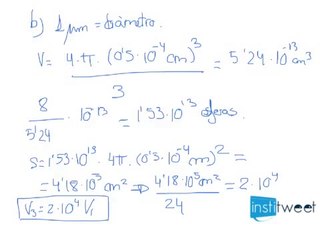 b) 1 μm = diámetro.
V = 4·π·(0'5·10^-4 cm)^3 / 3 = 5'24·10^-13 cm^3
8 / 5'24 · 10^-13 = 1'53·10^13 esferas.
S = 1'53·10^13 · 4π·(0'5·10^-4 m)^2 =
= 4'18·10^5 cm^2 ⇒ 4'18·10^5 cm^2 / 24 = 2·10^4
V3 = 2·10^4 V1
institweet